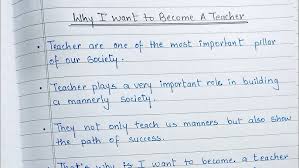 Why I Want to Become A Teacher
• Teacher are one of the most important pillar
of our society.
• Teacher plays a very important role in building
a mannerly society.
• They not only teach us manners but also show
the path of success.
• That's why I want to become, a teacher